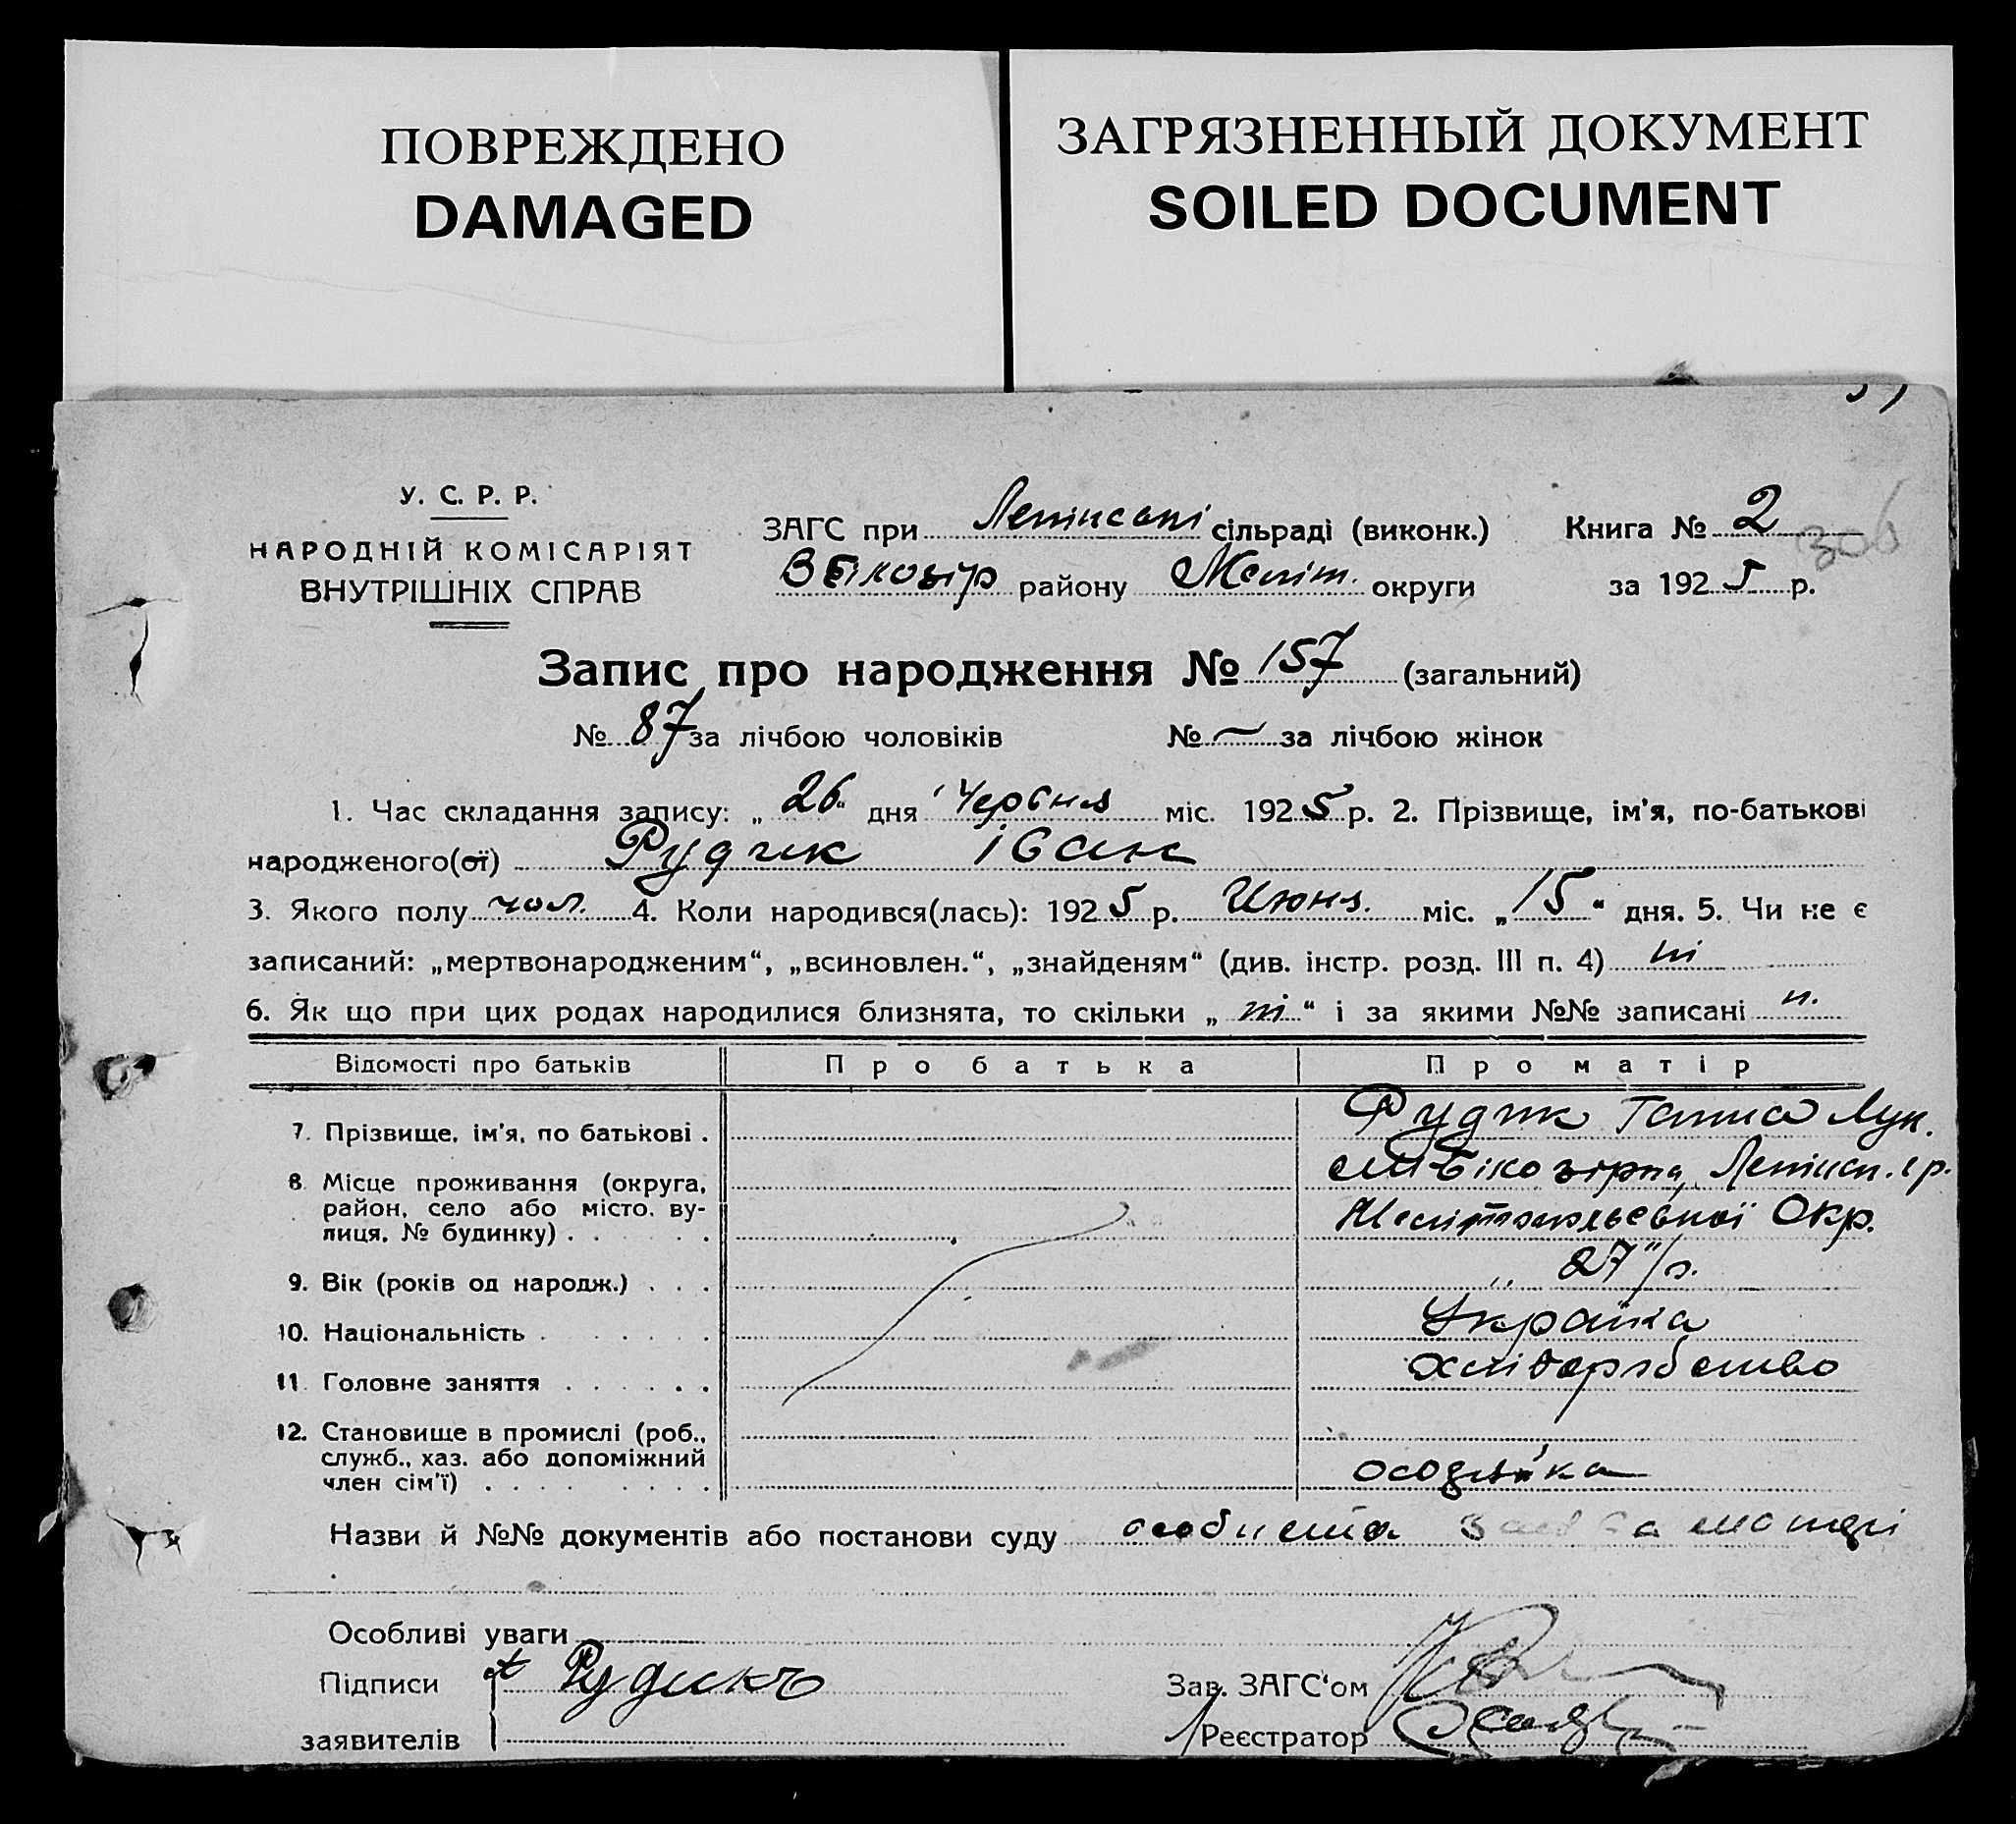 ПОВРЕЖДЕНО
DAMAGED
ЗАГРЯЗНЕННЫЙ ДОКУМЕНТ
SOILED DOCUMENT
У. С. Р. Р.
НАРОДНІЙ КОМІСАРІЯТ
ВНУТРІШНІХ СПРАВ
ЗАГС при сільраді (виконк.) Книга № 2
306
району Меліт. округи за 1925 р.
Запис про народження № 157 (загальний)
№ 87 за лічбою чоловіків № — за лічбою жінок
1. Час складання запису: „26“ дня Червня міс. 1925 р. 2. Прізвище, ім'я, по-батькові
народженого(ої) Рудик Іван
3. Якого полу чол. 4. Коли народився(лась): 1925 р. Июня. міс. „15“ дня. 5. Чи не є
записаний: „мертвонародженим“, „всиновлен.“, „знайденям“ (див. інстр. розд. III п. 4) ні
6. Як що при цих родах народилися близнята, то скільки „ні“ і за якими №№ записані н.
Відомості про батьків Про батька Про матір
7. Прізвище, ім'я, по батькові . Рудик Ганна Лук.
8. Місце проживання (округа,
район, село або місто, ву-
лиця, № будинку) . . . . . . Окр.
9. Вік (років од народж.) . . . 27 р.
10. Національність . . . . . . . Українка
11. Головне заняття . . . . . . хліборобство
12. Становище в промислі (роб.,
служб., хаз. або допоміжний
член сім'ї) . . . . . . . .
Назви й №№ документів або постанови суду особиста матері
Особливі уваги
Підписи Рудикъ Зав. ЗАГС'ом
заявителів Реєстратор